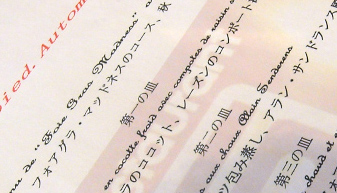 ied. Autom
nu de "Foie Gras Madness"
フォアグラ・マッドネスのコース、秋
第一の皿
en cocotte froid avec compotee de raisin
ラのココット、レーズンのコンポート
第二の皿
aux choux Alain Senderens
包み蒸し、アラン・サンドランス
第三の皿
chaud et